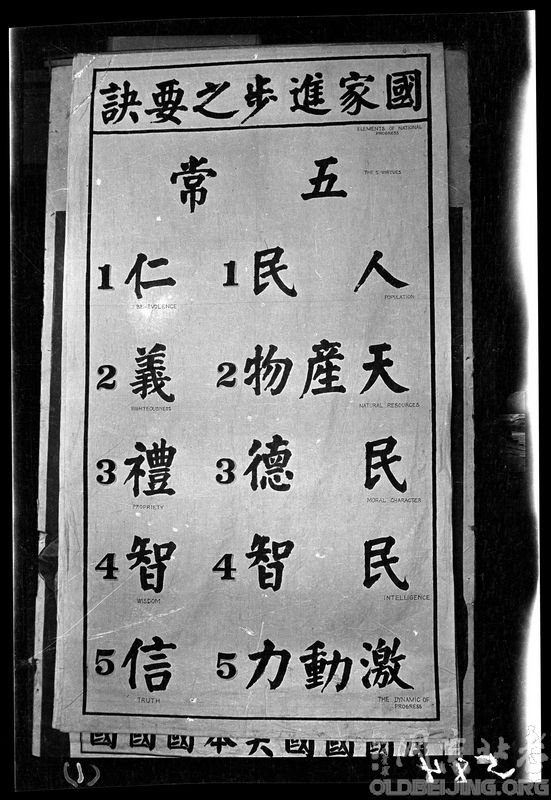 國家進步之要訣
ELEMENTS OF NATIONAL
PROGRESS
五常
THE 5 VIRTUES
1 人民
POPULATION
1 仁
BENEVOLENCE
2 天產物
NATURAL RESOURCES
2 義
RIGHTEOUSNESS
3 民德
MORAL CHARACTER
3 禮
PROPRIETY
4 民智
INTELLIGENCE
4 智
WISDOM
5 激動力
THE DYNAMIC OF
PROGRESS
5 信
TRUTH
(1)
OLDBEIJING.ORG